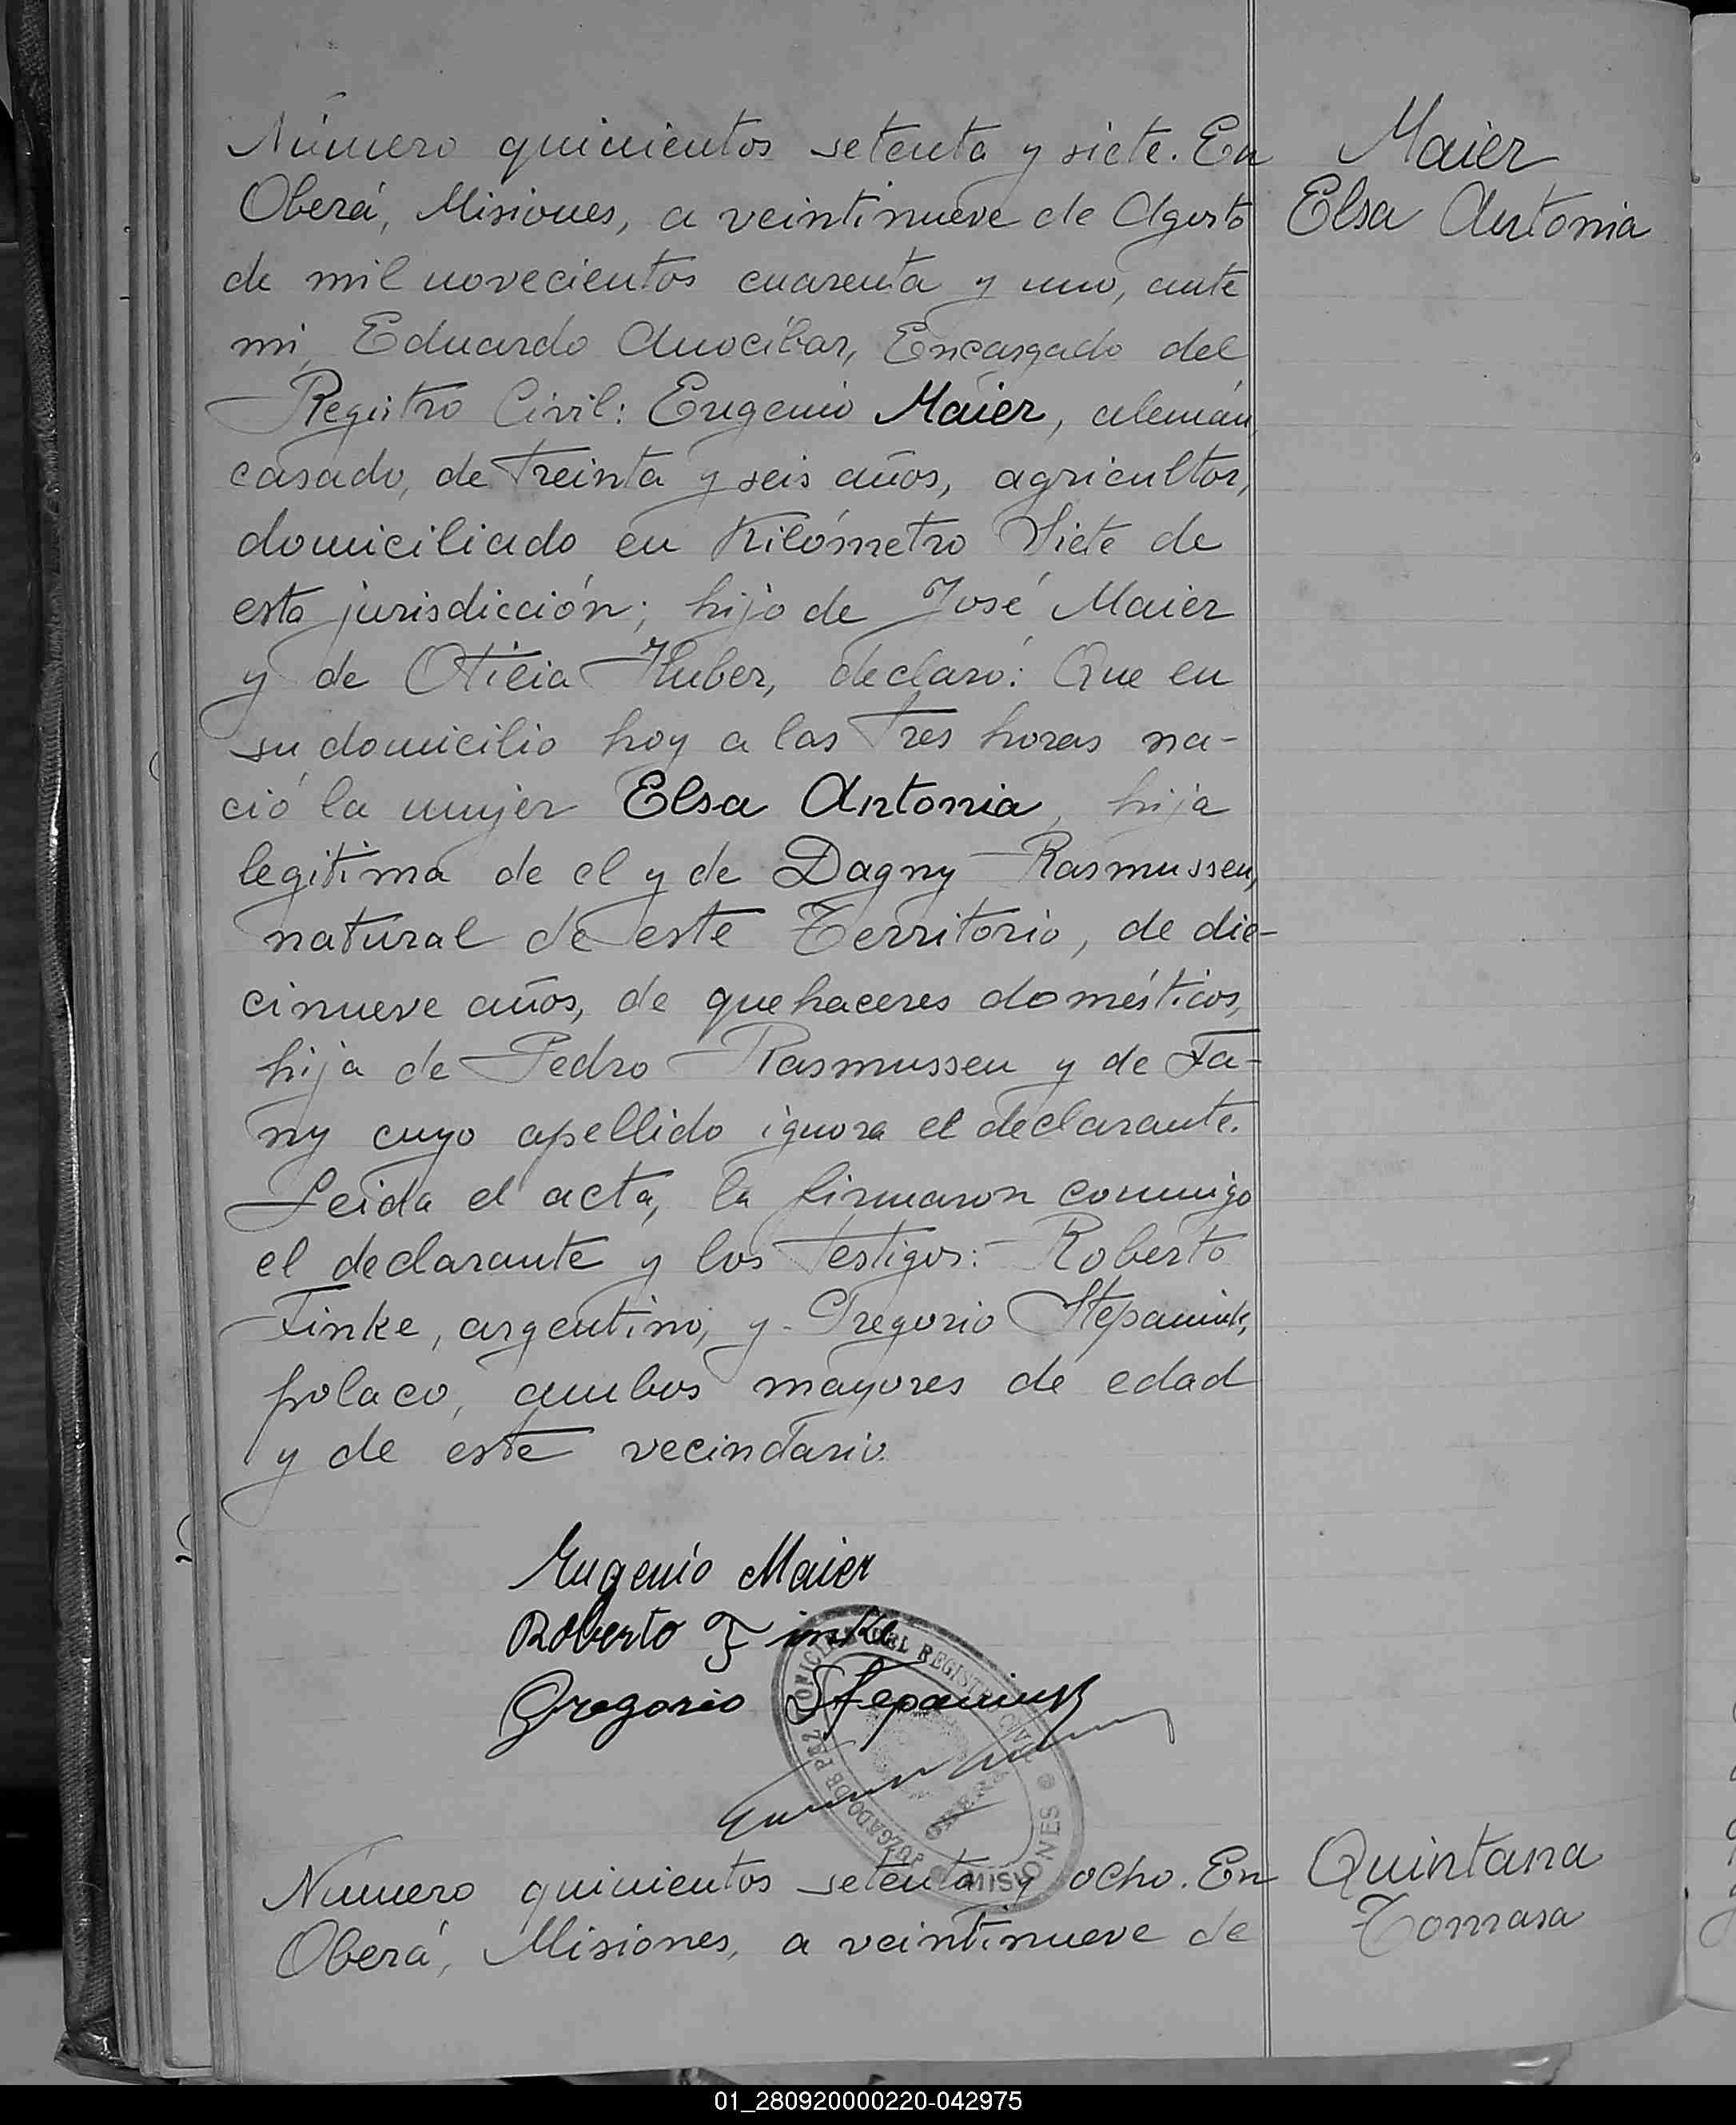 Número quinientos setenta y siete. En
Oberá, Misiones, a veintinueve de Agosto
de mil novecientos cuarenta y uno, ante
mi, Eduardo Anocíbar, Encargado del
Registro Civil: Eugenio Maier, alemán,
casado, de treinta y seis años, agricultor,
domiciliado en Kilómetro Siete de
esta jurisdicción; hijo de José Maier
y de Otilia Huber, declaró: Que en
su domicilio hoy a las tres horas na-
ció la mujer Elsa Antonia, hija
legitima de el y de Dagny Rasmussen,
natural de este Territorio, de die-
cinueve años, de quehaceres domésticos,
hija de Pedro Rasmussen y de Fa-
ny cuyo apellido ignora el declarante.
Leida el acta, la firmaron conmigo
el declarante y los testigos: Roberto
Finke, argentino, y Gregorio Stepaniuk,
polaco, ambos mayores de edad
y de este vecindario.
Maier
Elsa Antonia
Eugenio Maier
Roberto Finke
Gregorio Stepaniuk
JUZGADO DE PAZ Y OFICINA DEL REGISTRO CIVIL
MISIONES
Número quinientos setenta y ocho. En
Oberá, Misiones, a veintinueve de
Quintana
Tomasa
01_280920000220-042975